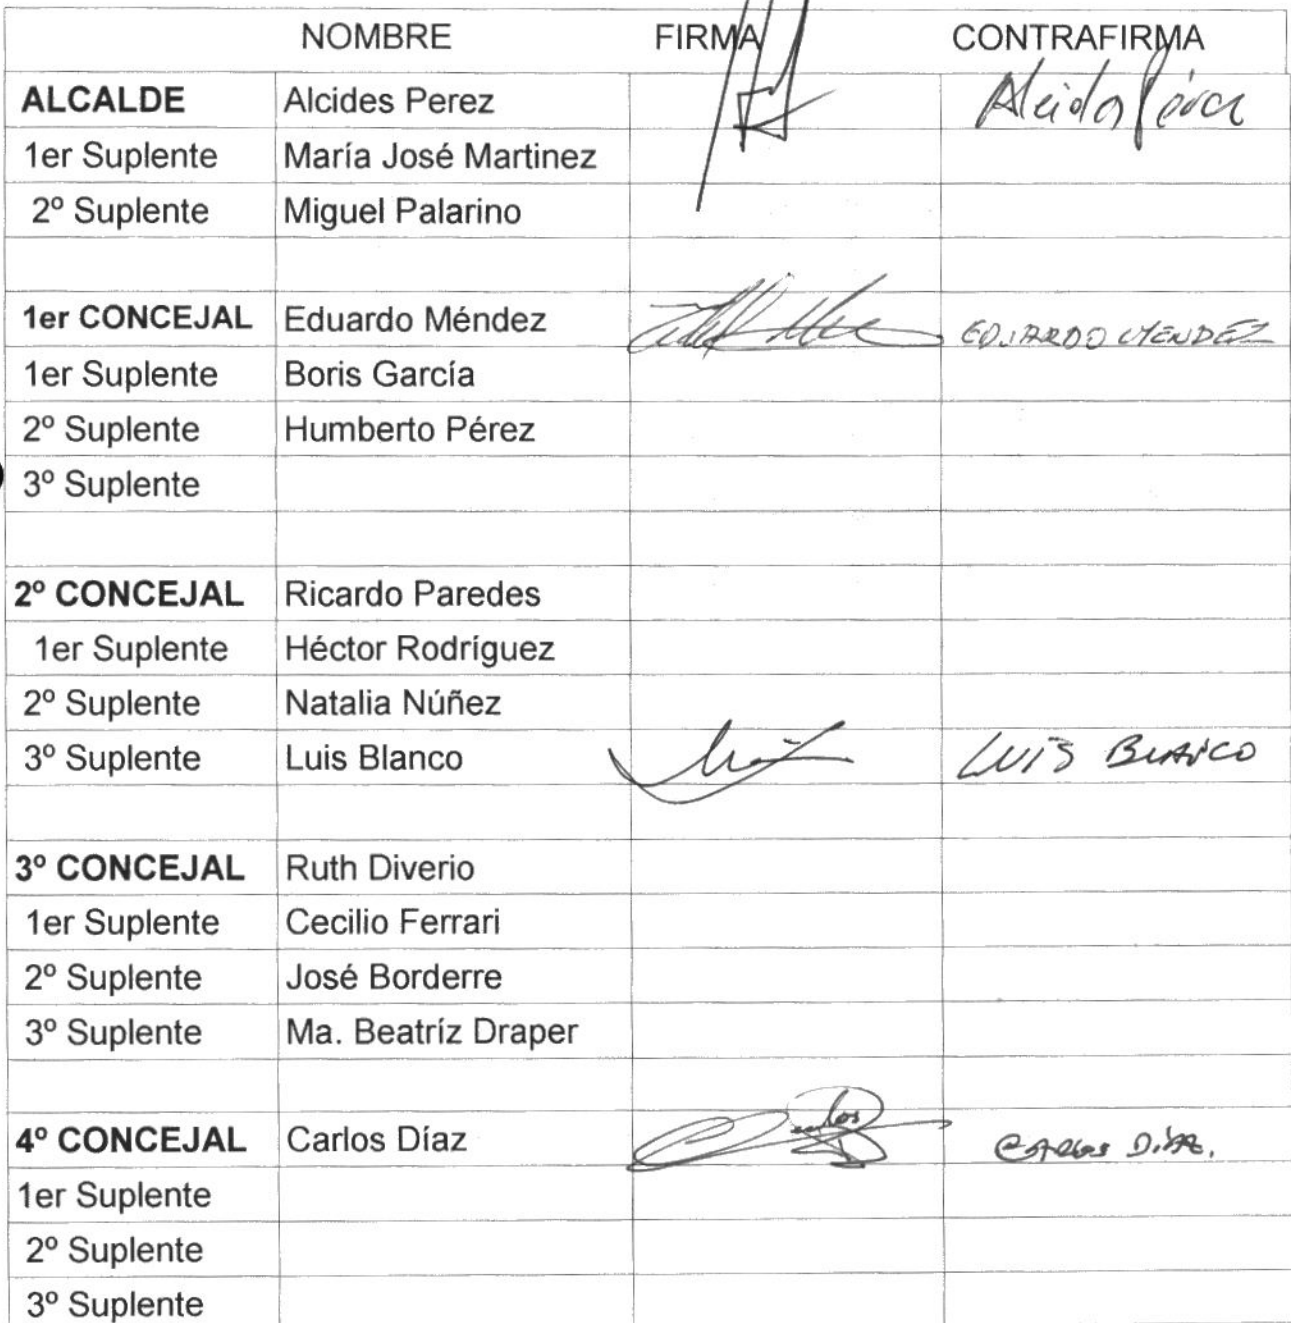 NOMBRE FIRMA CONTRAFIRMA
ALCALDE Alcides Perez Alcides Pérez
1er Suplente María José Martinez
2º Suplente Miguel Palarino
1er CONCEJAL Eduardo Méndez EDUARDO MENDEZ
1er Suplente Boris García
2º Suplente Humberto Pérez
3º Suplente
2º CONCEJAL Ricardo Paredes
1er Suplente Héctor Rodríguez
2º Suplente Natalia Núñez
3º Suplente Luis Blanco LUIS BLANCO
3º CONCEJAL Ruth Diverio
1er Suplente Cecilio Ferrari
2º Suplente José Borderre
3º Suplente Ma. Beatríz Draper
4º CONCEJAL Carlos Díaz Carlos CARLOS DÍAZ.
1er Suplente
2º Suplente
3º Suplente